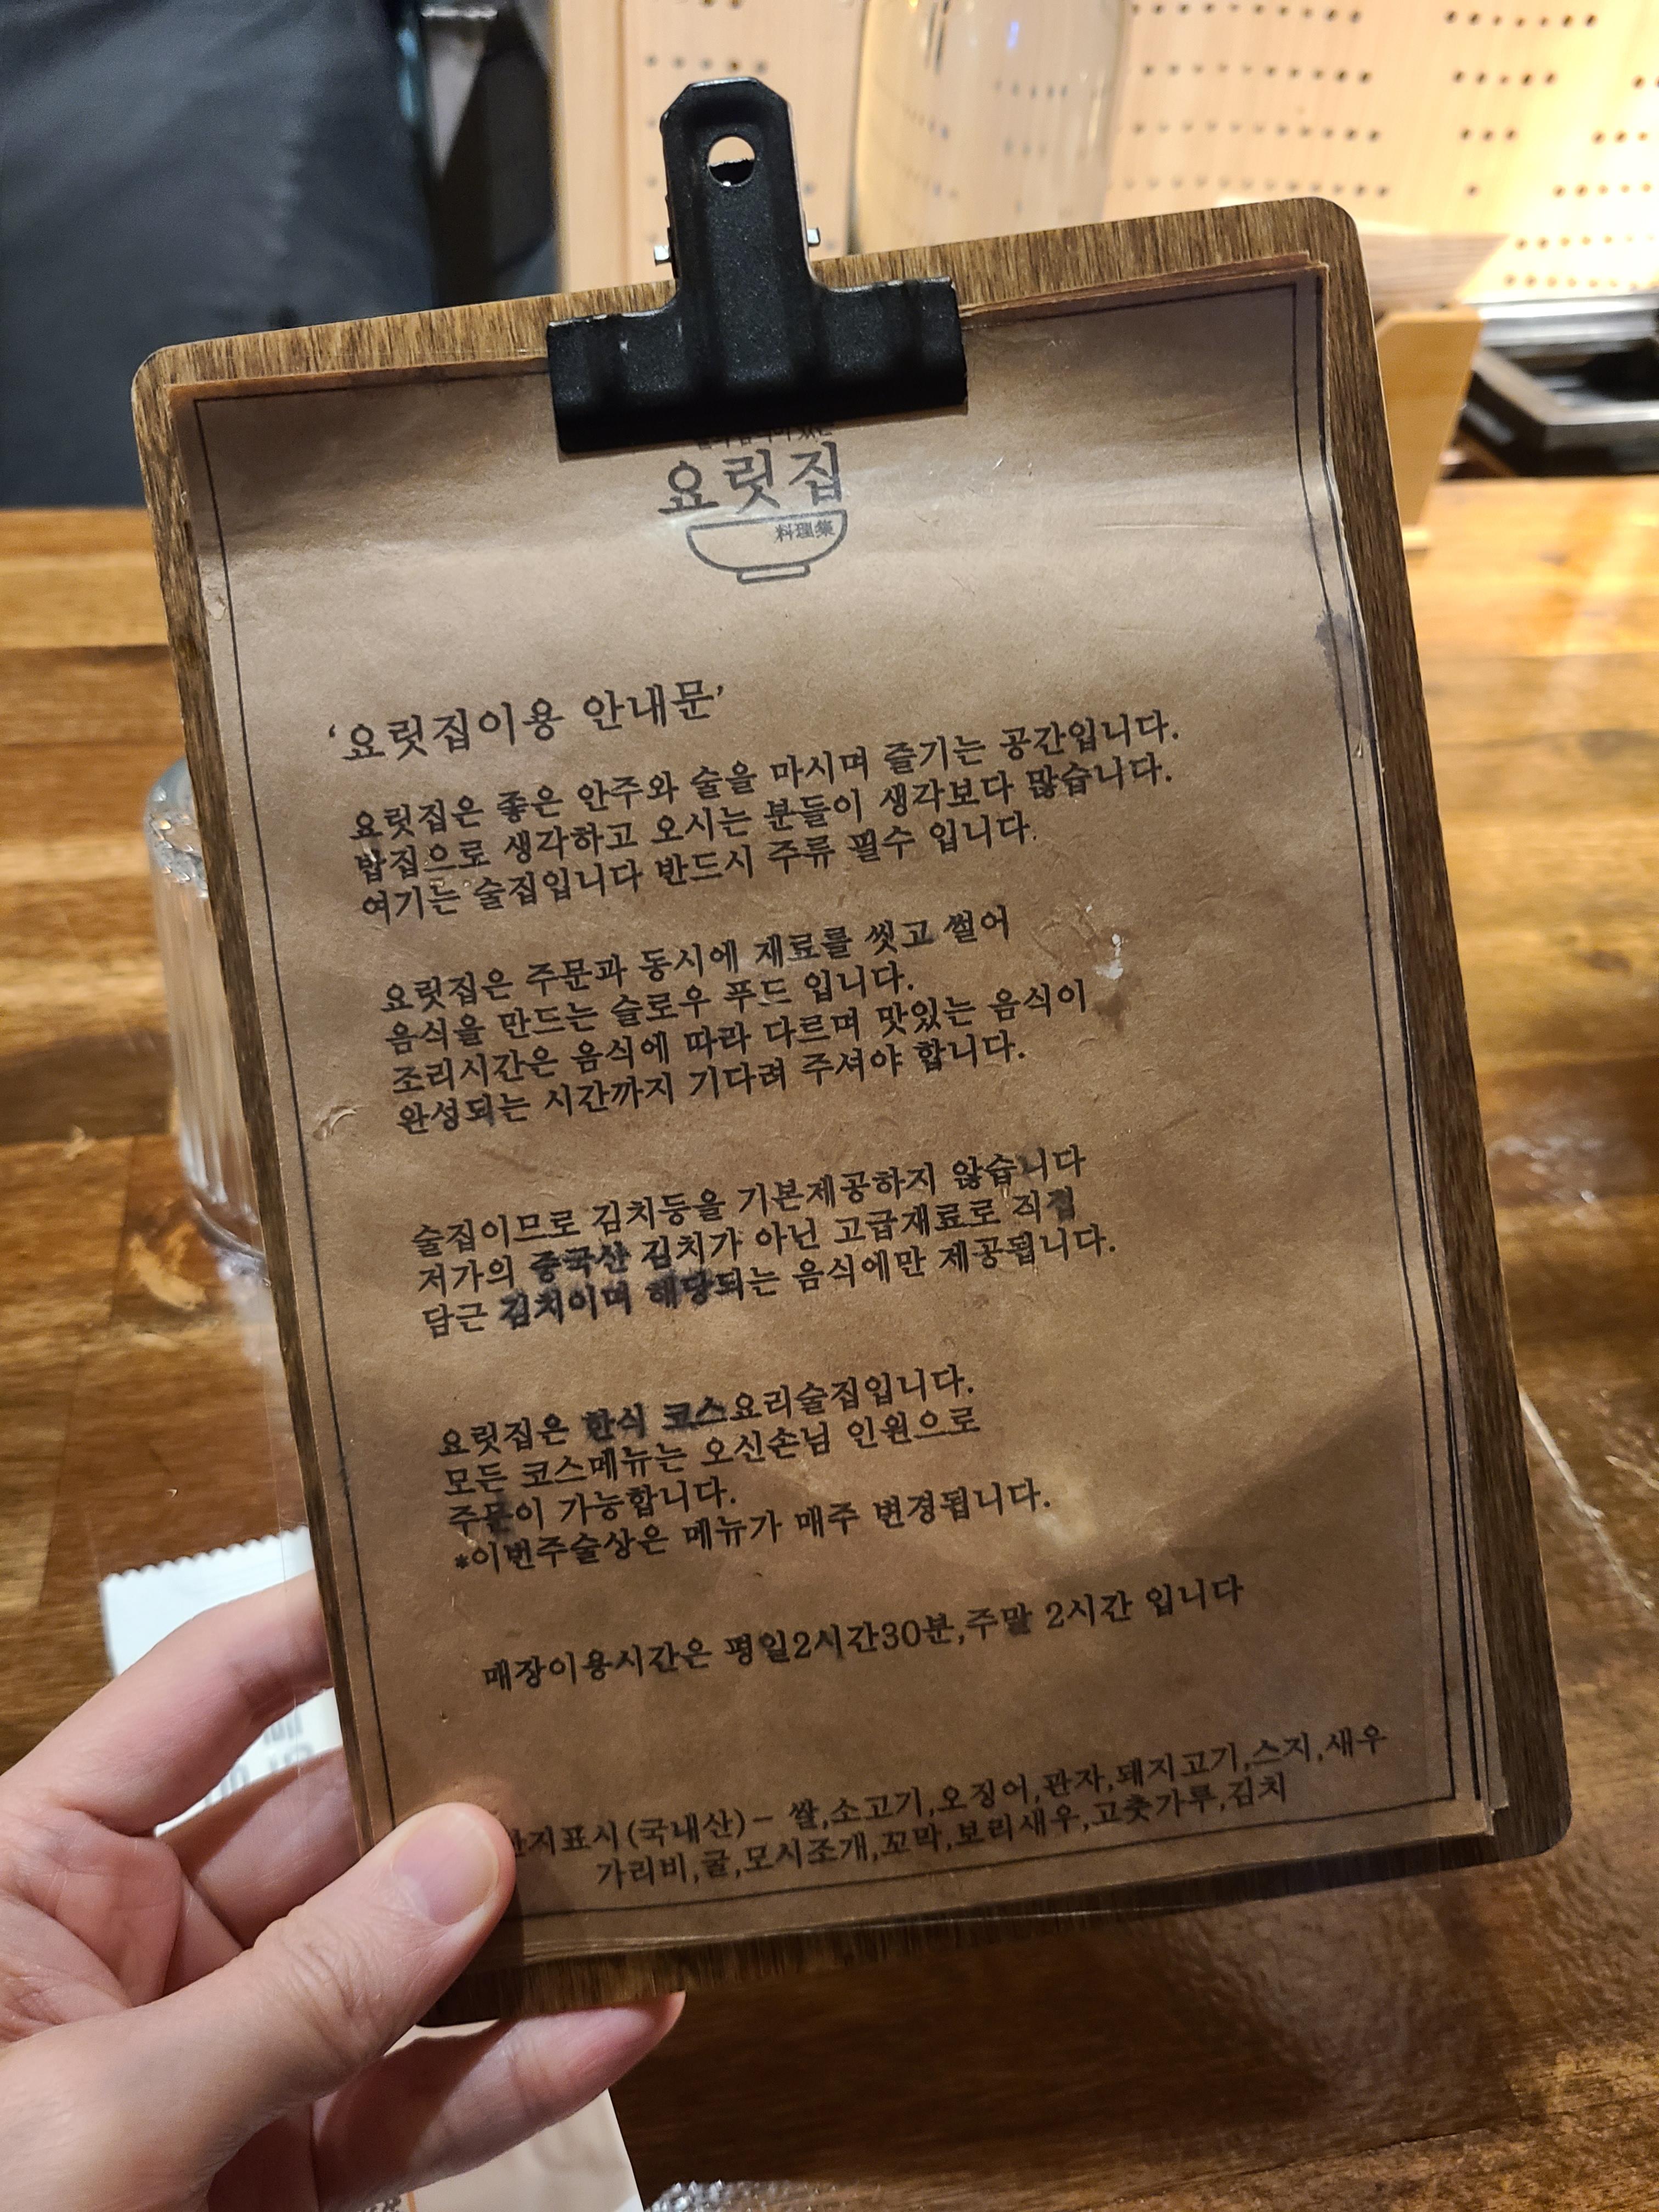 요릿집
料理集
‘요릿집이용 안내문’
요릿집은 좋은 안주와 술을 마시며 즐기는 공간입니다.
밥집으로 생각하고 오시는 분들이 생각보다 많습니다.
여기는 술집입니다 반드시 주류 필수 입니다.
요릿집은 주문과 동시에 재료를 씻고 썰어
음식을 만드는 슬로우 푸드 입니다.
조리시간은 음식에 따라 다르며 맛있는 음식이
완성되는 시간까지 기다려 주셔야 합니다.
술집이므로 김치등을 기본제공하지 않습니다
저가의 중국산 김치가 아닌 고급재료로 직접
담근 김치이며 해당되는 음식에만 제공됩니다.
요릿집은 한식 코스요리술집입니다.
모든 코스메뉴는 오신손님 인원으로
주문이 가능합니다.
*이번주술상은 메뉴가 매주 변경됩니다.
매장이용시간은 평일2시간30분,주말 2시간 입니다
산지표시(국내산)- 쌀,소고기,오징어,관자,돼지고기,스지,새우
가리비,굴,모시조개,꼬막,보리새우,고춧가루,김치